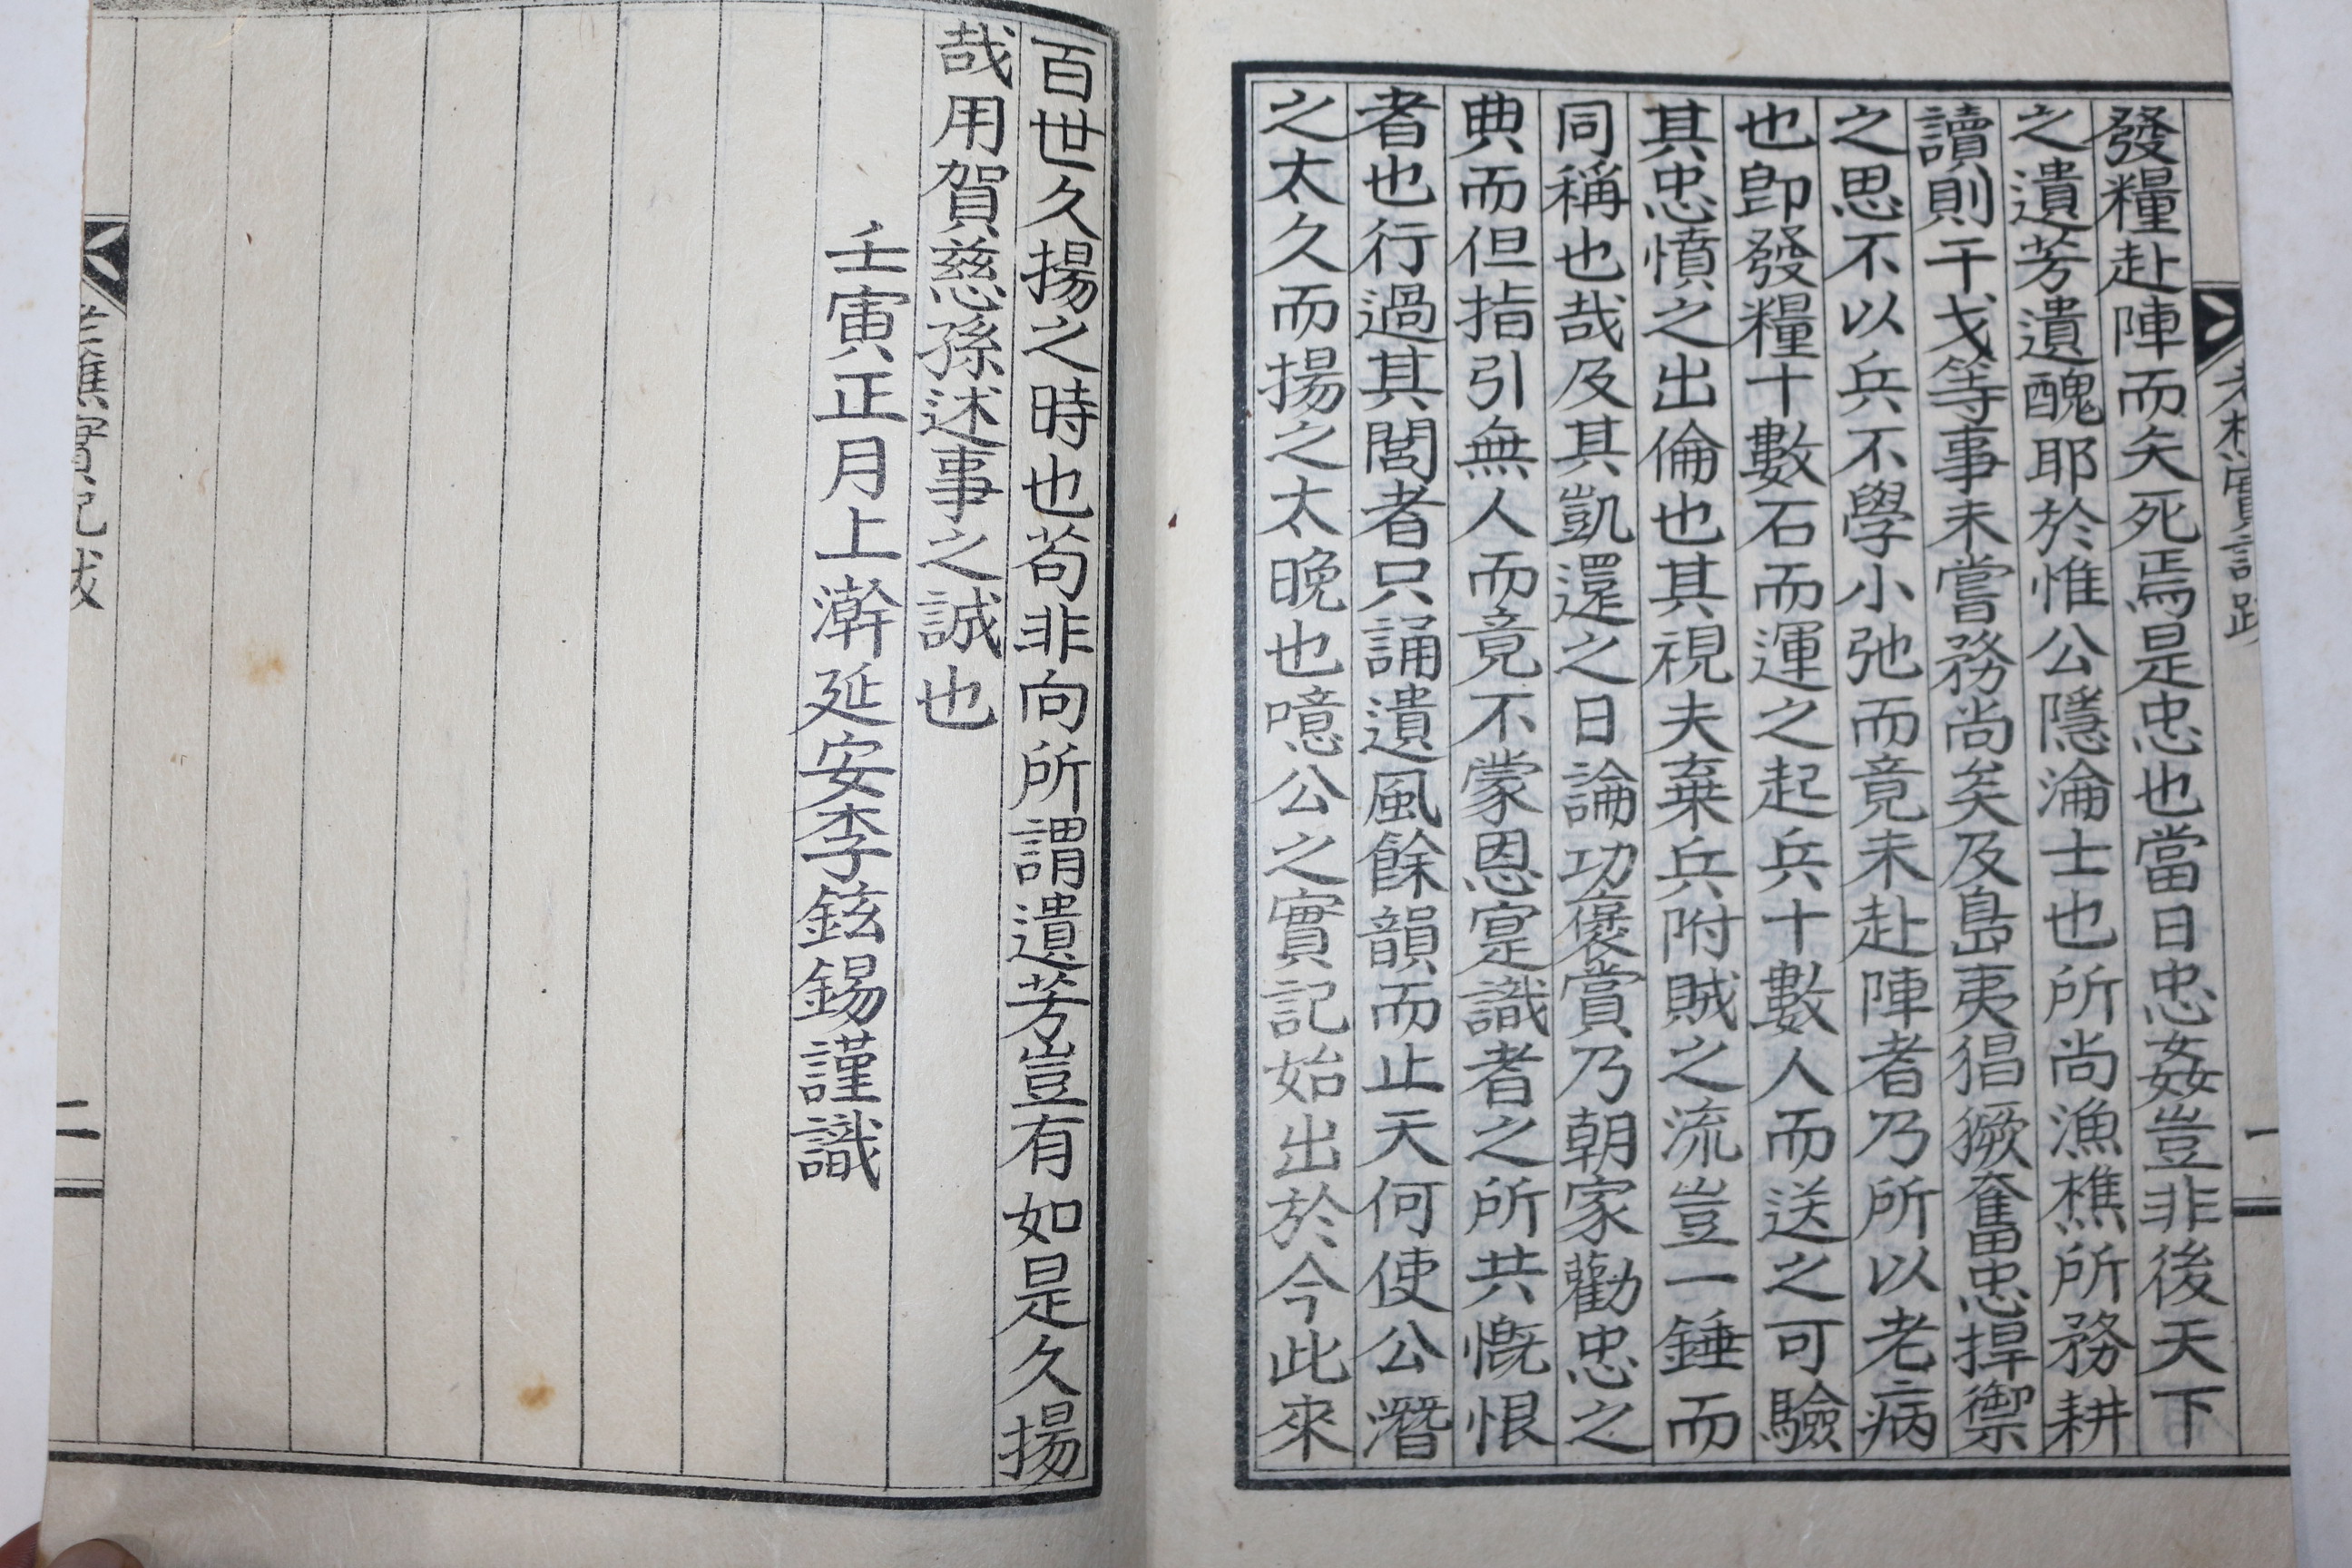 發糧赴陣而矢死焉是忠也當日忠姦豈非後天下
之遺芳遺醜耶於惟公隱淪士也所尚漁樵所務耕
讀則干戈等事未嘗務尚矣及島夷猖獗奮忠捍禦
之思不以兵不學小弛而竟未赴陣者乃所以老病
也卽發糧十數石而運之起兵十數人而送之可驗
其忠憤之出倫也其視夫棄兵附賊之流豈一錘而
同稱也哉及其凱還之日論功褒賞乃朝家勸忠之
典而但指引無人而竟不蒙恩寔識者之所共慨恨
者也行過其閭者只誦遺風餘韻而止天何使公潛
之太久而揚之太晚也噫公之實記始出於今此來
百世久揚之時也苟非向所謂遺芳豈有如是久揚
哉用賀慈孫述事之誠也
壬寅正月上澣延安李鉉錫謹識
樵實記跋
二
一